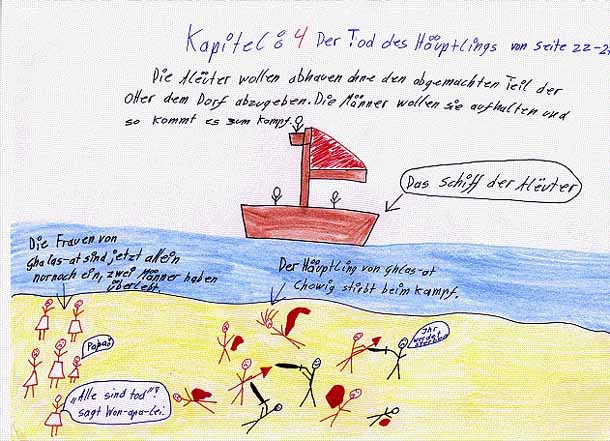 Kapitel: 4 Der Tod des Häuptlings von Seite 22-2
Die Alëuter wollen abhauen ohne den abgemachten Teil der
Otter dem Dorf abzugeben. Die Männer wollen sie aufhalten und
so kommt es zum Kampf.
Das Schiff der Alëuter
Die Frauen von
Ghalas-at sind jetzt allein
nurnoch ein, zwei Männer haben
überlebt.
Der Häuptling von ghlas-at
Chowig stirbt beim Kampf.
Papa!
Ihr
werdet
sterben
„Alle sind tod"?
sagt Won-apa-lei.